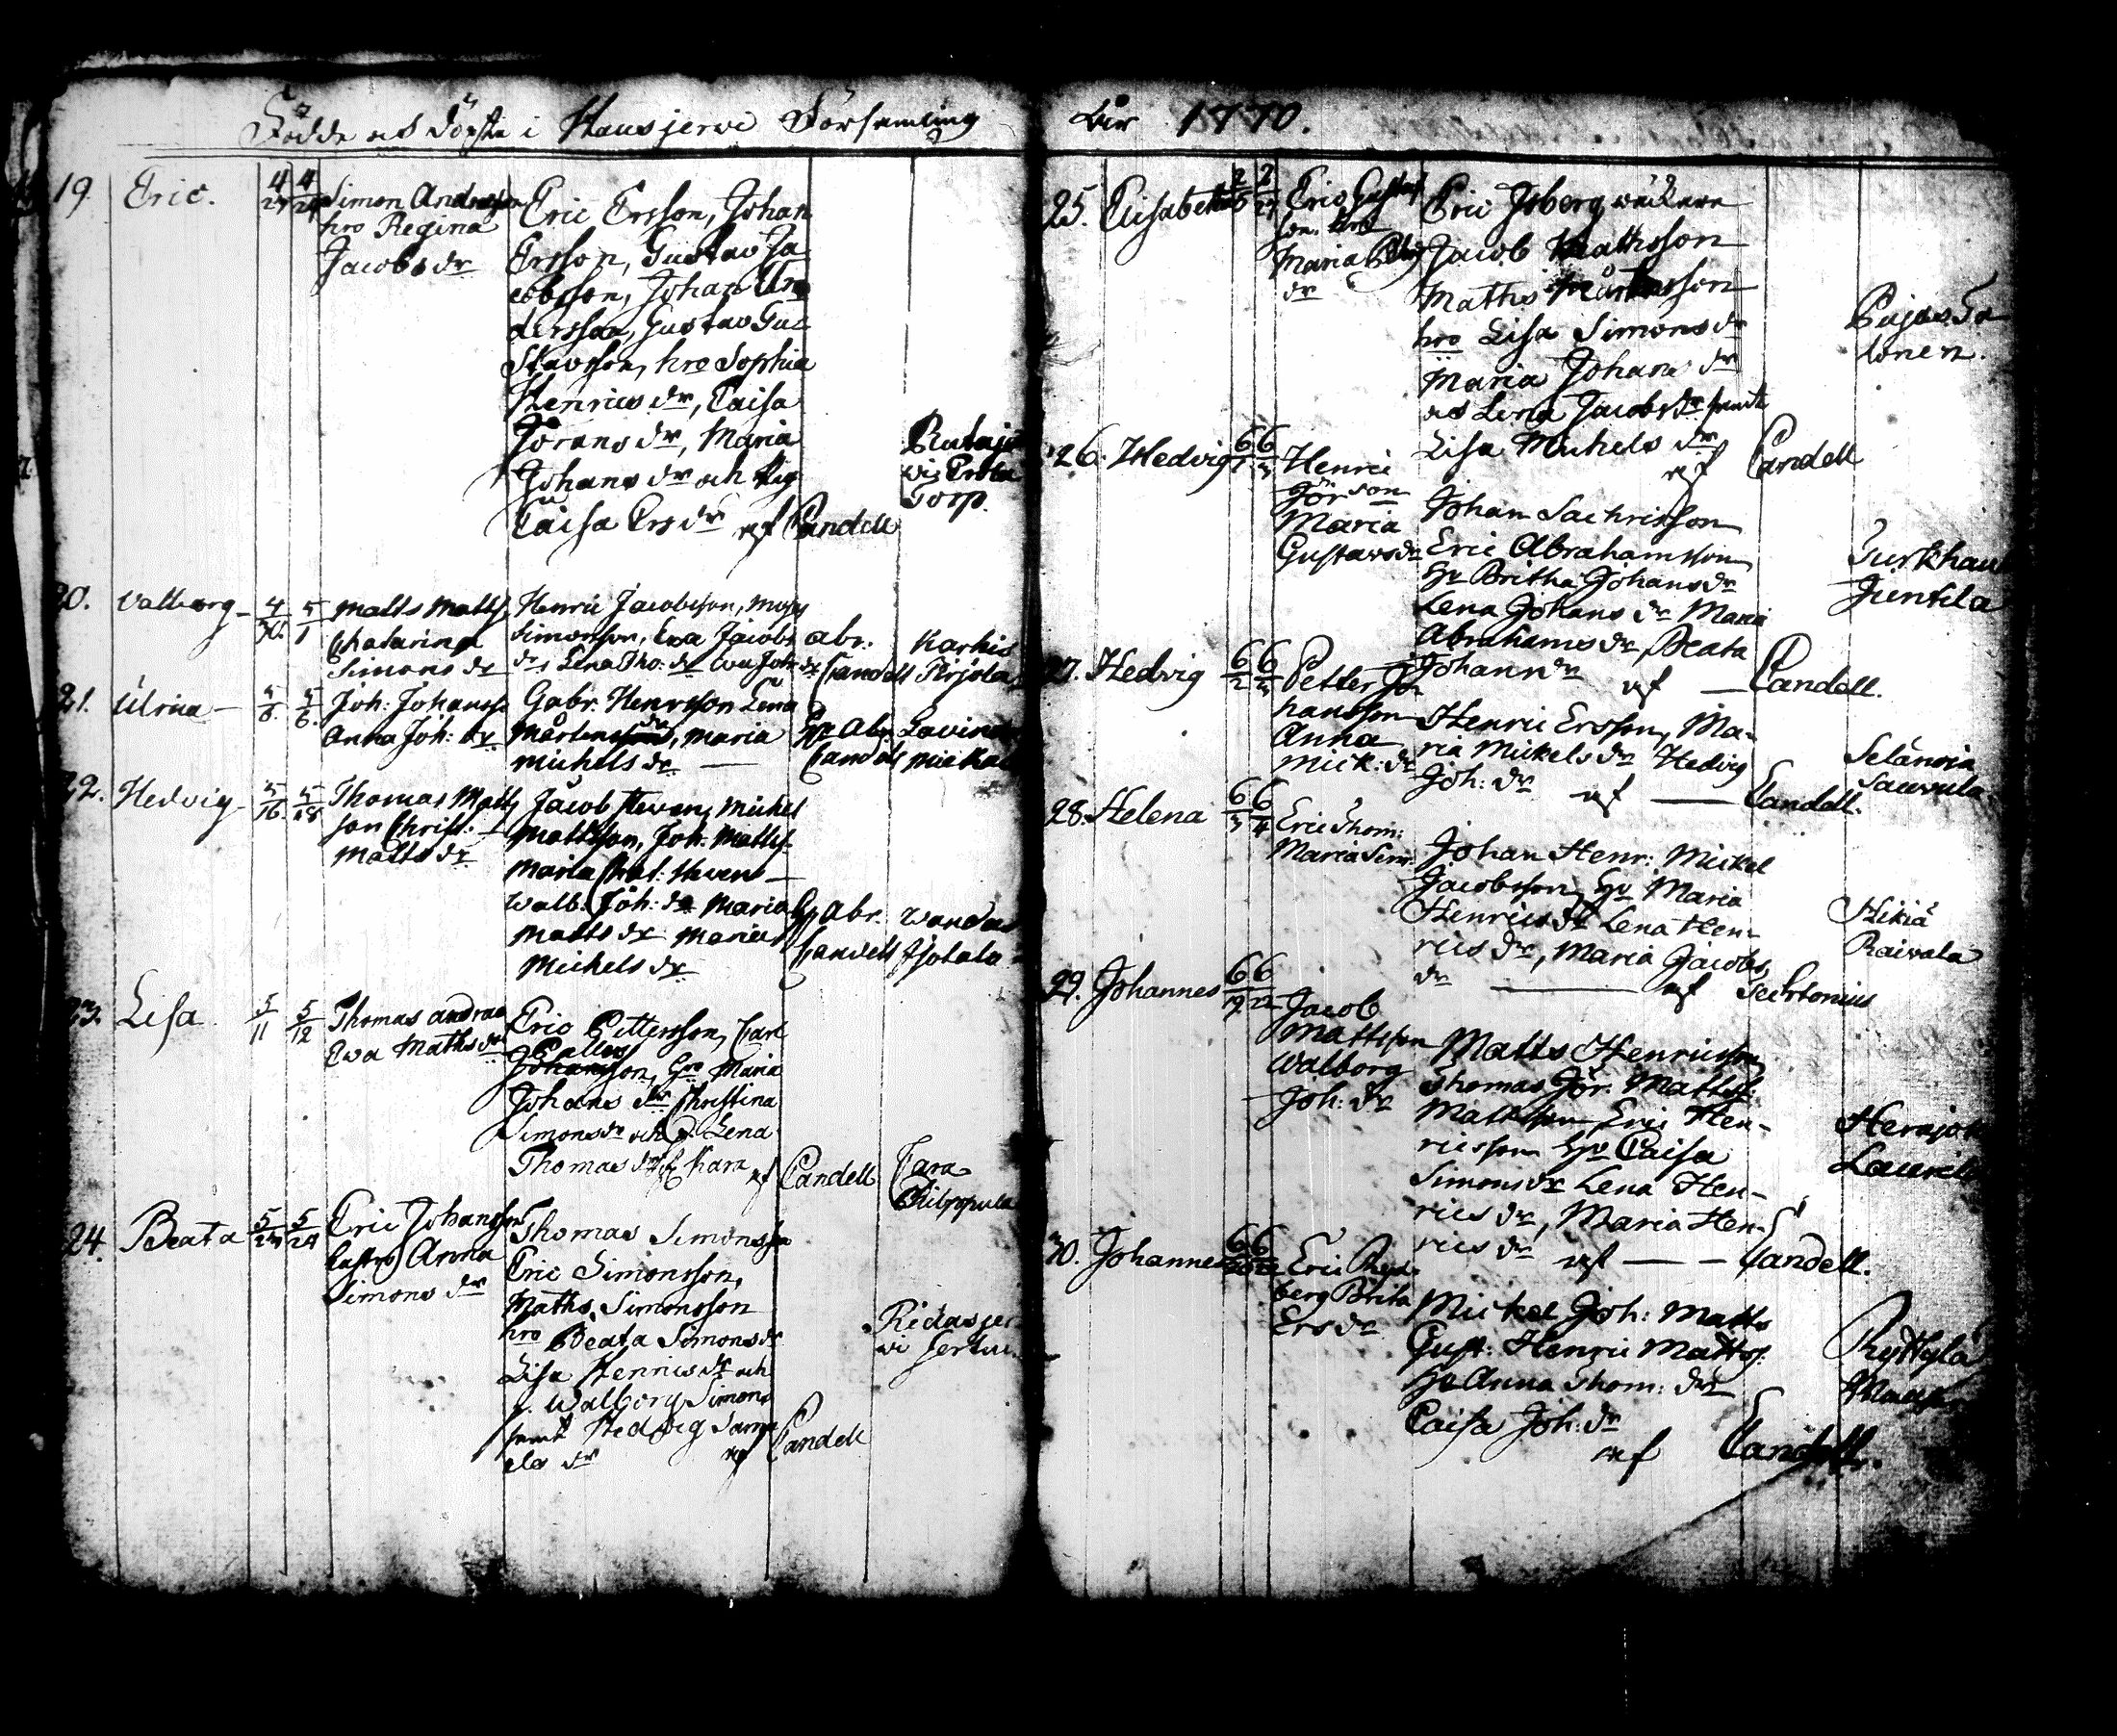 Födde och Döpte i Hausjerwi Församling
Åhr 1770.
19. Eric. 4/24 4/24 Simon Andersson
hro Regina
Jacobs dr
Eric Ersson, Johan
Ersson, Gustav Ja
cobsson, Johan An
dersson, Gustav Gu
stavsson, hro Sophia
Henrics dr, Caisa
Jörans dr, Maria
Johans dr och Pig
Caisa Ers dr af Candell
Torp.
20. Valborg 4/30 5/1 Matts Matts
Chatarina
Simons dr
Henric Jacobsson,
Simonsson, Ewa Jacobs
dr, Lena Tho: dr Ewa Joh: dr
abr:
Candell
Karhis
Pirjola
21. Ulrica 5/6. 5/6. Joh: Johansso
Anna Joh: dr
Gabr. Henrsson Lena
Mårtens dr, Maria
Michels dr
Abr.
Candell
Lavin
Mickal
22. Hedvig 5/16. 5/18 Thomas Matts
son Christ:
Matts dr
Jacob Heven, Michel
Mattsson, Joh: Matts
Maria Heven
Walb: Joh: dr Maria
Matts dr Maria
Michels dr
Abr.
Candell
Wandas
23. Lisa 5/11 5/12 Thomas Andrae
Ewa Maths dr
Eric Pittersson, Carl
Johansson, hro Maria
Johans dr Christina
Simons dr och Lena
Thomas dr af Candell
Cara
Philppula
24. Beata 5/24 5/24 Eric Johansson
Anna
Simons dr
Thomas Simonsson
Eric Simonsson,
Maths Simonsson
hro Beata Simons dr
Lisa Henrics dr och
Walborg Simons
samt Hedvig Samu
els dr af Candell
Ridasjer
wi
25. Elisabeth Eric Gustaf
son hro
Maria
dr
Eric Isberg
Jacob Mathsson
Maths
hro Lisa Simons dr
Maria Johans dr
och Lena Jacobs dr samt
Lisa Michels dr
af Candell
26. Hedvig 6/1 6/3 Henric
Görson
Maria
Gustavs dr
Johan Sachrisson
Eric Abrahamsson
Hu Britha Johans dr
Lena Johans dr Maria
Abrahams dr, Beata
Johans dr af Candell.
Turkhau
Juntila
27. Hedvig 6/2 6/3 Petter Jo
hansson
Anna
Mick: dr
Henric Ersson, Ma-
ria Mickels dr Hedvig
Joh: dr af Candell.
Selänoia
Sauvula
28. Helena 6/3 6/4 Eric Thom:
Maria Sim:
Johan Henr: Mickel
Jacobsson, Hu Maria
Henrics dr Lena Hen-
rics dr, Maria Jacobs
dr af Sechtonius
Hikiä
Raivala
29. Johannes 6/19. 6/22 Jacob
Mattsson
Walborg
Joh: dr
Matts Henricsson
Thomas Jör: Mattss:
Mattsson Eric Hen-
ricsson Hu Caisa
Simons dr Lena Hen-
rics dr, Maria Hen-
rics dr af Candell.
Herajok
Lauril
30. Johannes Eric Ryd-
berg Brita
Ers dr
Mickel Joh: Matts
Gust: Henric Mattss:
Hu Anna Thom: dr
Caisa Joh: dr
af Candell.
Ryttylä